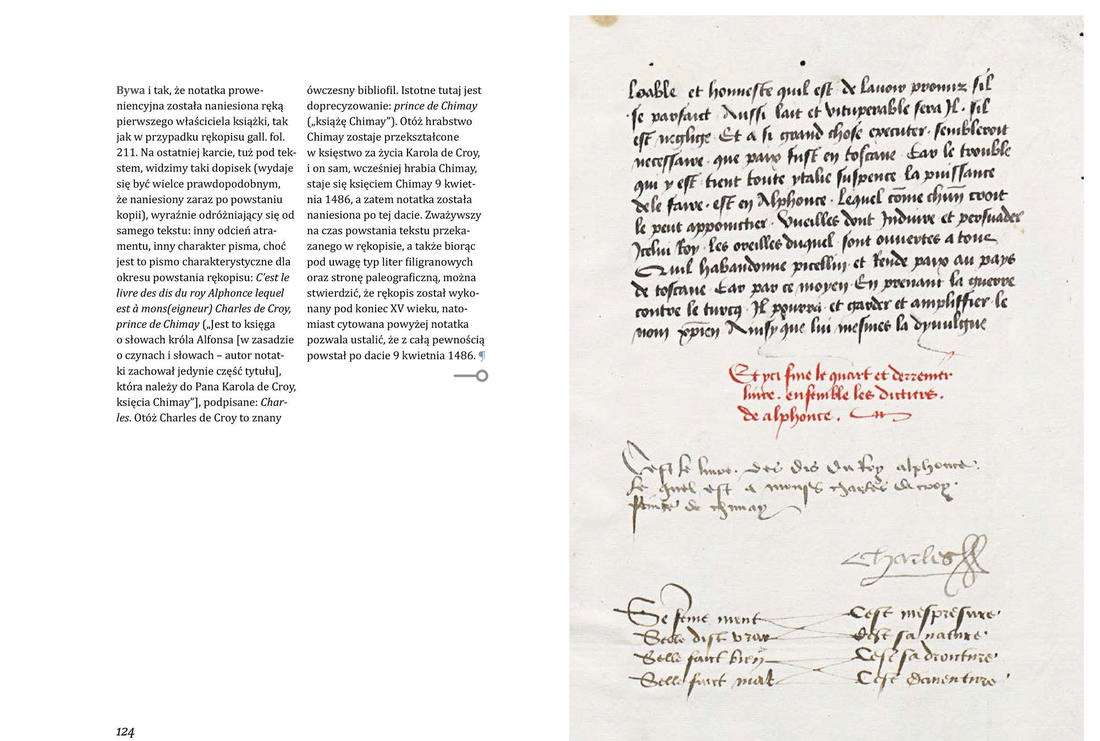 Bywa i tak, że notatka prowe-
niencyjna została naniesiona ręką
pierwszego właściciela książki, tak
jak w przypadku rękopisu gall. fol.
211. Na ostatniej karcie, tuż pod tek-
stem, widzimy taki dopisek (wydaje
się być wielce prawdopodobnym,
że naniesiony zaraz po powstaniu
kopii), wyraźnie odróżniający się od
samego tekstu: inny odcień atra-
mentu, inny charakter pisma, choć
jest to pismo charakterystyczne dla
okresu powstania rękopisu: C'est le
livre des dis du roy Alphonce lequel
est à mons(eigneur) Charles de Croy,
prince de Chimay („Jest to księga
o słowach króla Alfonsa [w zasadzie
o czynach i słowach – autor notat-
ki zachował jedynie część tytułu],
która należy do Pana Karola de Croy,
księcia Chimay"], podpisane: Char-
les. Otóż Charles de Croy to znany
ówczesny bibliofil. Istotne tutaj jest
doprecyzowanie: prince de Chimay
(„książę Chimay"). Otóż hrabstwo
Chimay zostaje przekształcone
w księstwo za życia Karola de Croy,
i on sam, wcześniej hrabia Chimay,
staje się księciem Chimay 9 kwiet-
nia 1486, a zatem notatka została
naniesiona po tej dacie. Zważywszy
na czas powstania tekstu przeka-
zanego w rękopisie, a także biorąc
pod uwagę typ liter filigranowych
oraz stronę paleograficzną, można
stwierdzić, że rękopis został wyko-
nany pod koniec XV wieku, nato-
miast cytowana powyżej notatka
pozwala ustalić, że z całą pewnością
powstał po dacie 9 kwietnia 1486. ¶
124
loable et honneste quil est de lavoir promiz sil
se parfaict Aussi lait et vituperable sera Il. sil
est neglige Et a si grand chose executer sembleroit
necessaire que paix fust en toscane Car le trouble
qui y est tient toute ytalie suspence la puissance
dele faire est en Alphonce. Lequel cōme chūn croit
le peut appoinctier. Vueilles dont Induire et persuader
Icelui Roy. les oreilles duquel sont ouvertes a toue
Quil habandonne picellin et Rende paix au pays
de toscane Car par ce moyen En prenant la guerre
contre le turcq Il pourra et garder et ampliffier le
nom xpien Ainsy que lui mesmes la dyvulgue
Et yci fine le quart et derrenier
livre. ensemble les dicture.
de alphonce.
Cest le livre. des dis du Roy alphonce.
le quel est a monss charles de croy.
prince de chimay
Charles
Se feme ment Cest mespresure
Selle dist vray Cest sa nature
Selle faict bien Cest sa droiture
Selle faict mal Cest daventure